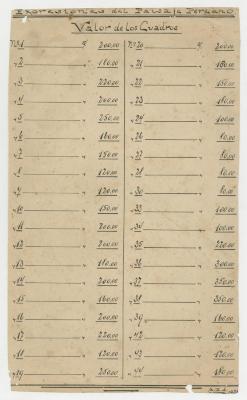 Expresiones del Paisaje Peruano
Valor de los Cuadros
Nº 1 " 200.00
" 2 " 180.00
" 3 " 220.00
" 4 " 200.00
" 5 " 250.00
" 6 " 180.00
" 7 " 150.00
" 8 " 120.00
" 9 " 120.00
" 10 " 150.00
" 11 " 200.00
" 12 " 200.00
" 13 " 180.00
" 14 " 200.00
" 15 " 160.00
" 16 " 200.00
" 17 " 220.00
" 18 " 120.00
" 19 " 250.00
Nº 20 " 200.00
" 21 " 150.00
" 22 " 150.00
" 23 " 180.00
" 24 " 100.00
" 25 " 100.00
" 26 " 80.00
" 27 " 80.00
" 28 " 80.00
" 30 " 80.00
" 33 " 100.00
" 34 " 100.00
" 35 " 220.00
" 36 " 300.00
" 37 " 250.00
" 38 " 350.00
" 39 " 160.00
" 42 " 120.00
" 43 " 120.00
" 44 " 180.00